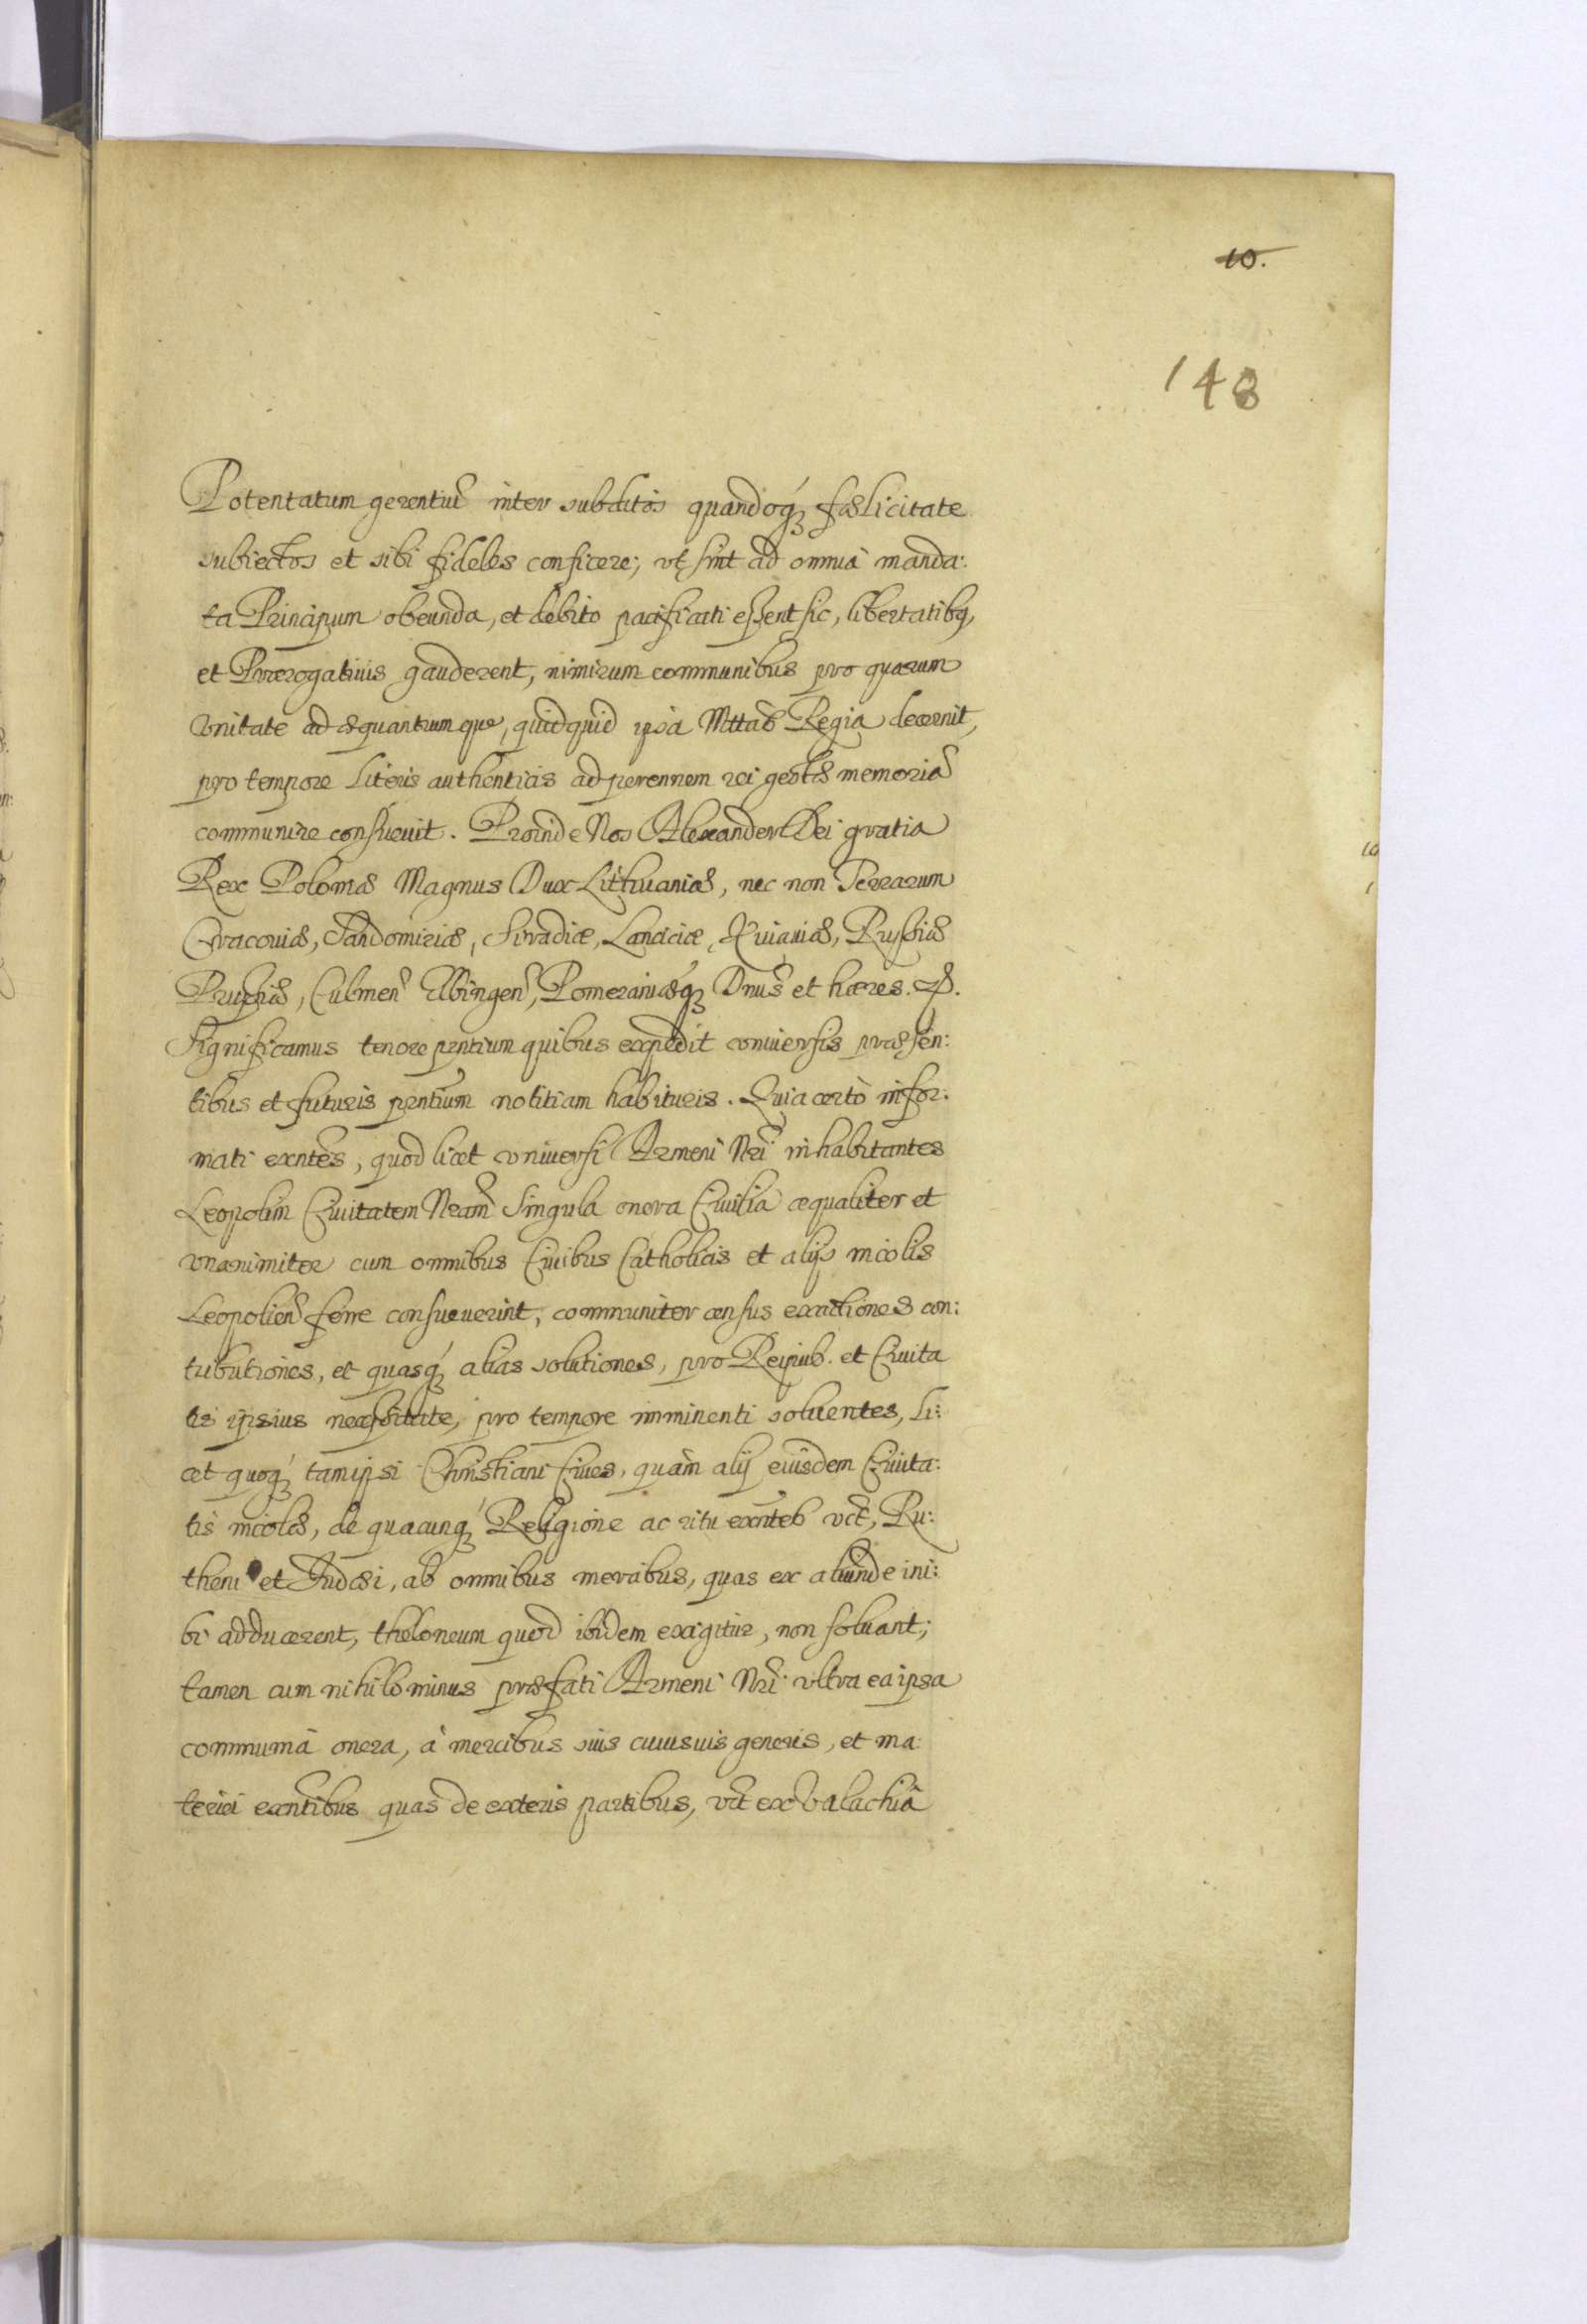 10.
148
Potentatum gerentiũ inter subditos quandoq́ꝫ fælicitate
subiectos et sibi fideles conficere; vt sint ad omnia manda:
ta Principum obeunda, et debito pacificati essent sic, libertatibꝫ,
et Prærogatiuis gauderent, nimirum communibus pro quarum
vnitate ad æquantrumque, quidquid ipsa Mttas Regia decernit,
pro tempore Literis authenticis ad perennem rei gestæ memoriã
communire consueuit. Proinde Nos Alexander Dei gratia
Rex Poloniæ Magnus Dux Lithuaniæ, nec non Terrarum
Cracouiæ, Sandomiriæ, Siradiæ, Lanciciæ, Cuiauiæ, Russiæ
Prussiæ, Culmeñ Elbingeñ, Pomeraniæq́ꝫ Dnus̃ et hæres. &.
Significamus tenore pr̃ntium quibus expedit vniuersis præsen:
tibus et futuris prntiũm notitiam habituris. Quia certò infor:
mati exñtes, quod licet vniuersi Armeni Nr̃i inhabitantes
Leopolim Ciuitatem Nr̃am Singula onera Ciuilia æqualiter et
vnanimiter cum omnibus Ciuibus Catholicis et alijs incolis
Leopolieñ ferre consueuerint, communiter census exactiones con:
tributiones, et quasq́ꝫ alias solutiones, pro Reipub. et Ciuita
tis ipsius necessitate, pro tempore imminenti soluentes, Li:
cet quoq́ꝫ tam ipsi Christiani Ciues, quàm alij eiusdem Ciuita:
tis incolæ, de quacunq́ꝫ Religione ac ritu exñtes vct̃, Ru:
theni et Iudæi, ab omnibus mercibus, quas ex aliunde ini:
bi adducerent, theloneum quod ibidem exigitur, non soluant;
tamen cum nihilominus præfati Armeni Nr̃i vltra ea ipsa
communia onera, à mercibus suis cuiusuis generis, et ma:
teriei exñtibus quas de exteris partibus, vct̃ ex Valachia